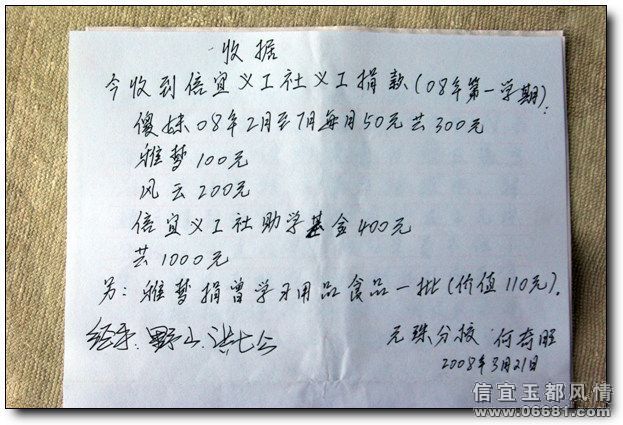 收据
今收到信宜义工社义工捐款(08年第一学期).
傻妹08年2月至7月每月50元共300元
雅梦100元
风云200元
信宜义工社助学基金400元
共1000元
另:雅梦捐曾学习用品食品一批(价值110元).
经手:野山.洪七公
元珠分校 何奇旺
2008年3月21日
信宜玉都风情
www.06681.com